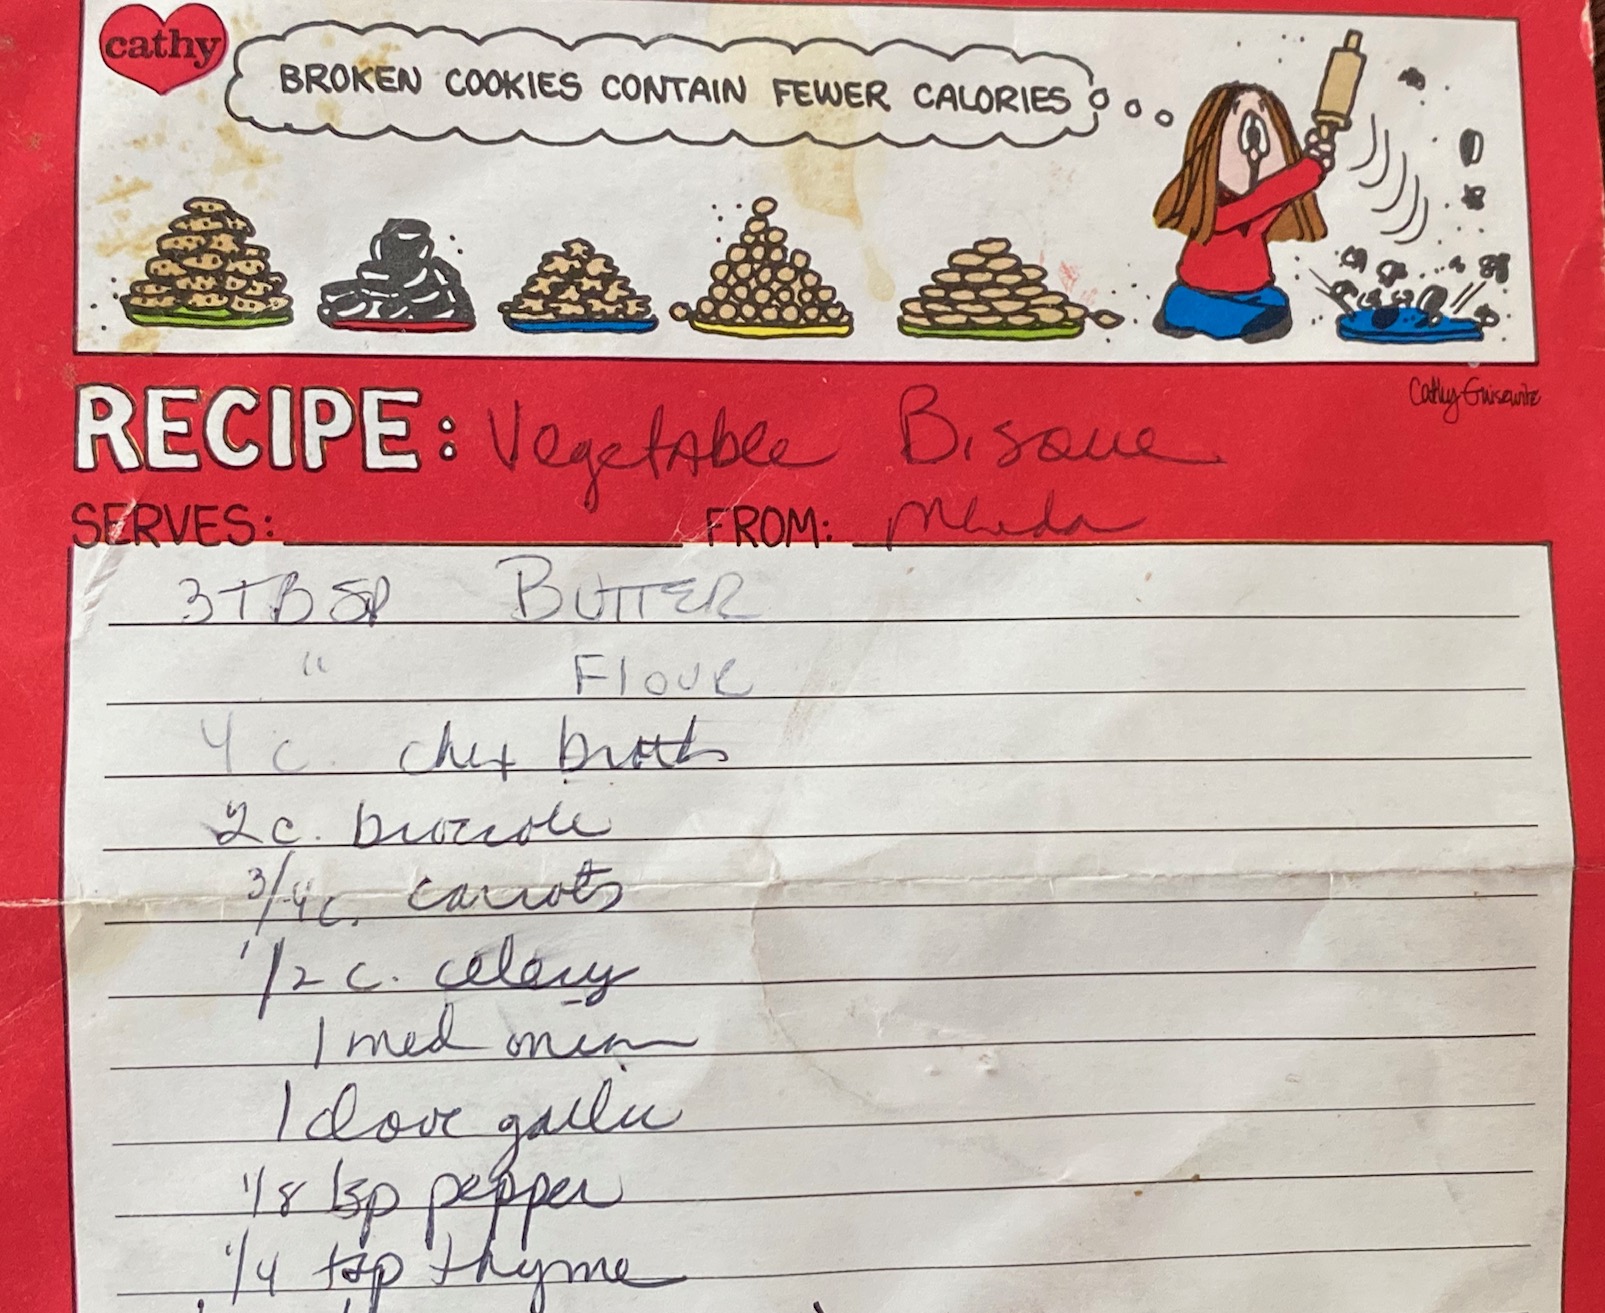 cathy
BROKEN COOKIES CONTAIN FEWER CALORIES
Cathy Guisewite
RECIPE: Vegetable Bisque
SERVES: FROM:
3 TBSP BUTTER
" Flour
4 c. broth
2 c. broccoli
3/4 c. carrots
1/2 c. celery
1 med onion
1 clove garlic
1/8 tsp pepper
1/4 tsp thyme